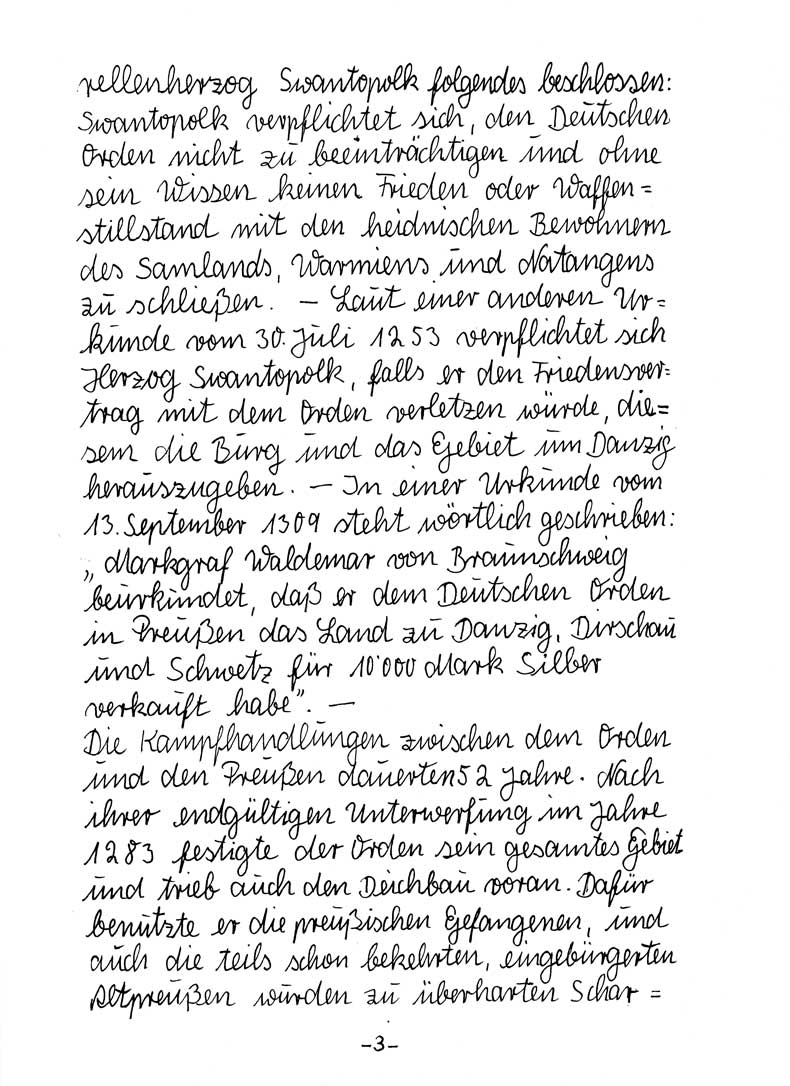 rellenherzog Swantopolk folgendes beschlossen:
Swantopolk verpflichtet sich, den Deutschen
Orden nicht zu beeinträchtigen und ohne
sein Wissen keinen Frieden oder Waffen=
stillstand mit den heidnischen Bewohnern
des Samlands, Warmiens und Natangens
zu schließen. – Laut einer anderen Ur=
kunde vom 30. Juli 1253 verpflichtet sich
Herzog Swantopolk, falls er den Friedensver=
trag mit dem Orden verletzen würde, die=
sem die Burg und das Gebiet um Danzig
herauszugeben. – In einer Urkunde vom
13. September 1309 steht wörtlich geschrieben:
„Markgraf Waldemar von Braunschweig
beurkundet, daß er dem Deutschen Orden
in Preußen das Land zu Danzig, Dirschau
und Schwetz für 10'000 Mark Silber
verkauft habe". –
Die Kampfhandlungen zwischen dem Orden
und den Preußen dauerten 52 Jahre. Nach
ihrer endgültigen Unterwerfung im Jahre
1283 festigte der Orden sein gesamtes Gebiet
und trieb auch den Deichbau voran. Dafür
benutzte er die preußischen Gefangenen, und
auch die teils schon bekehrten, eingebürgerten
Altpreußen wurden zu überharten Schar=
-3-